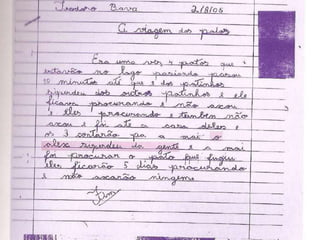 Teodoro Bava 2/8/05
A viagem dos patos
Era uma ves 4 patos que
estavão no lago pasiando pasou
10 minutos até que 1 dos patinhos
siperdeu dos outros patinhos e ele
ficava procurando e não axou
e eles procurando e tembem não
axou e foi até a casa deles e
os 3 contarão pa a mai o
alex siperdeu da gente e a mai
foi procurar o pato que fugiu
eles ficarão 5 dias procurando
e não axarão ningem.
Fim